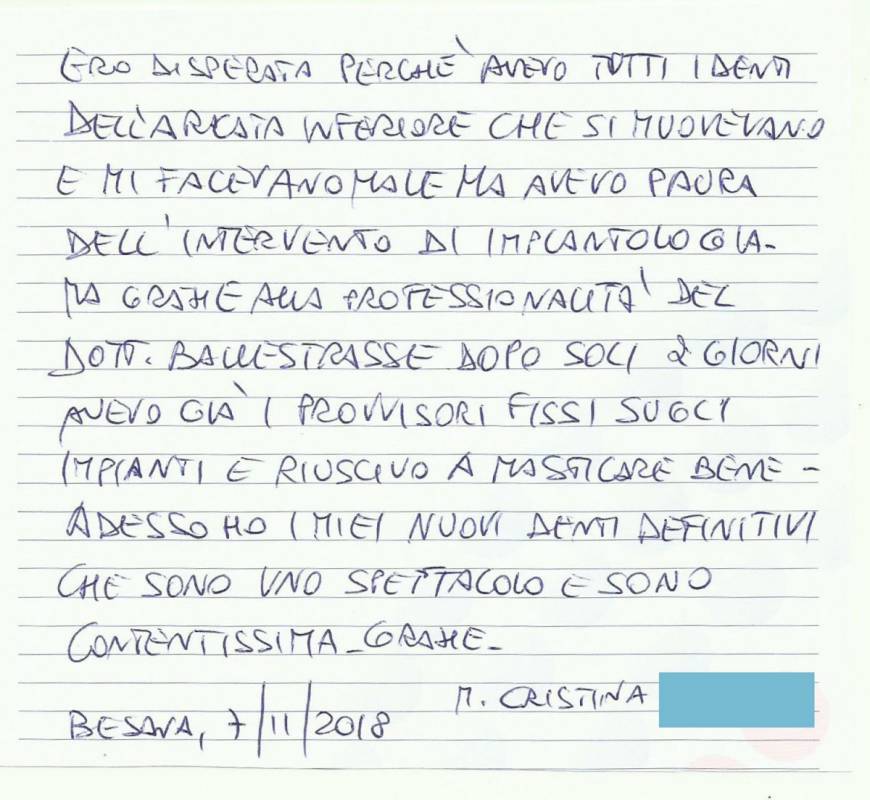 ERO DISPERATA PERCHE' AVEVO TUTTI I DENTI
DELL'ARCATA INFERIORE CHE SI MUOVEVANO
E MI FACEVANO MALE MA AVEVO PAURA
DELL'INTERVENTO DI IMPLANTOLOGIA-
MA GRAZIE ALLA PROFESSIONALITA' DEL
DOTT. BALLESTRASSE DOPO SOLI 2 GIORNI
AVEVO GIÀ I PROVVISORI FISSI SUGLI
IMPIANTI E RIUSCIVO A MASTICARE BENE -
ADESSO HO I MIEI NUOVI DENTI DEFINITIVI
CHE SONO UNO SPETTACOLO E SONO
CONTENTISSIMA - GRAZIE -
M. CRISTINA
BESANA, 7/11/2018